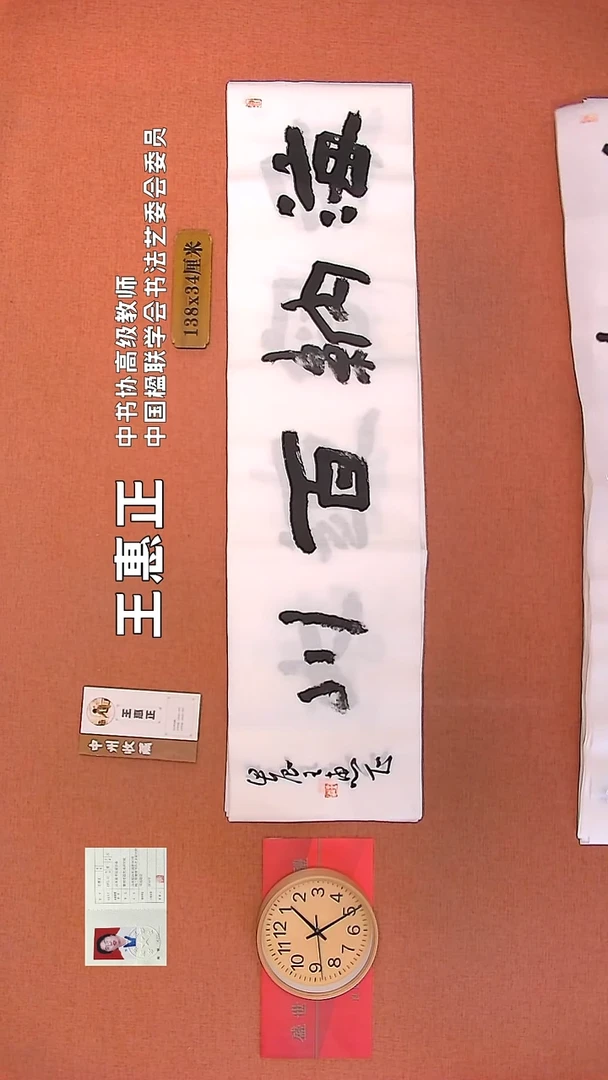 中书协高级教师
中国楹联学会书法艺委会委员
王惠正
138x34厘米
海納百川
甲辰王惠正
王惠正
中州收藏
12
1
2
3
4
5
6
7
8
9
10
11